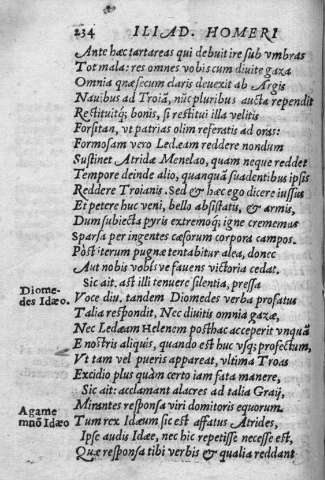 234 ILIAD. HOMERI
Ante hæc tartareas qui debuit ire sub vmbras
Tot mala: res omnes vobiscum diuite gaza
Omnia quæsecum claris deuexit ab Argis
Nauibus ad Troiā, nūc pluribus aucta rependit
Restituitq; bonis, si restitui illa velitis
Forsitan, vt patrias olim referatis ad oras:
Formosam vero Ledæam reddere nondum
Sustinet Atridæ Menelao, quam neque reddet
Tempore deinde alio, quanquā suadentibus ipsis
Reddere Troianis. Sed & hæc ego dicere iussus
Et petere huc veni, bello absistatis, & armis,
Dum subiecta pyris extremoq; igne crememus
Sparsa per ingentes cæsorum corpora campos.
Pòst iterum pugnæ tentabitur alea, donec
Aut nobis vobisve fauens victoria cedat.
Sic ait. ast illi tenuere silentia, pressa
Diome-
des Idæo.
Voce diu. tandem Diomedes verba profatus
Talia respondit, Nec diuitis omnia gazæ,
Nec Ledæam Helenem posthac acceperit vnquā
E nostris aliquis, quando est huc vsq; profectum,
Vt tam vel pueris appareat, vltima Troas
Excidio plus quàm certo iam fata manere,
Sic ait: acclamant alacres ad talia Graij,
Mirantes responsa viri domitoris equorum.
Agame
mnō Idæo
Tum rex Idæum sic est affatus Atrides,
Ipse audis Idæe, nec hic repetisse necesse est,
Quæ responsa tibi verbis & qualia reddant